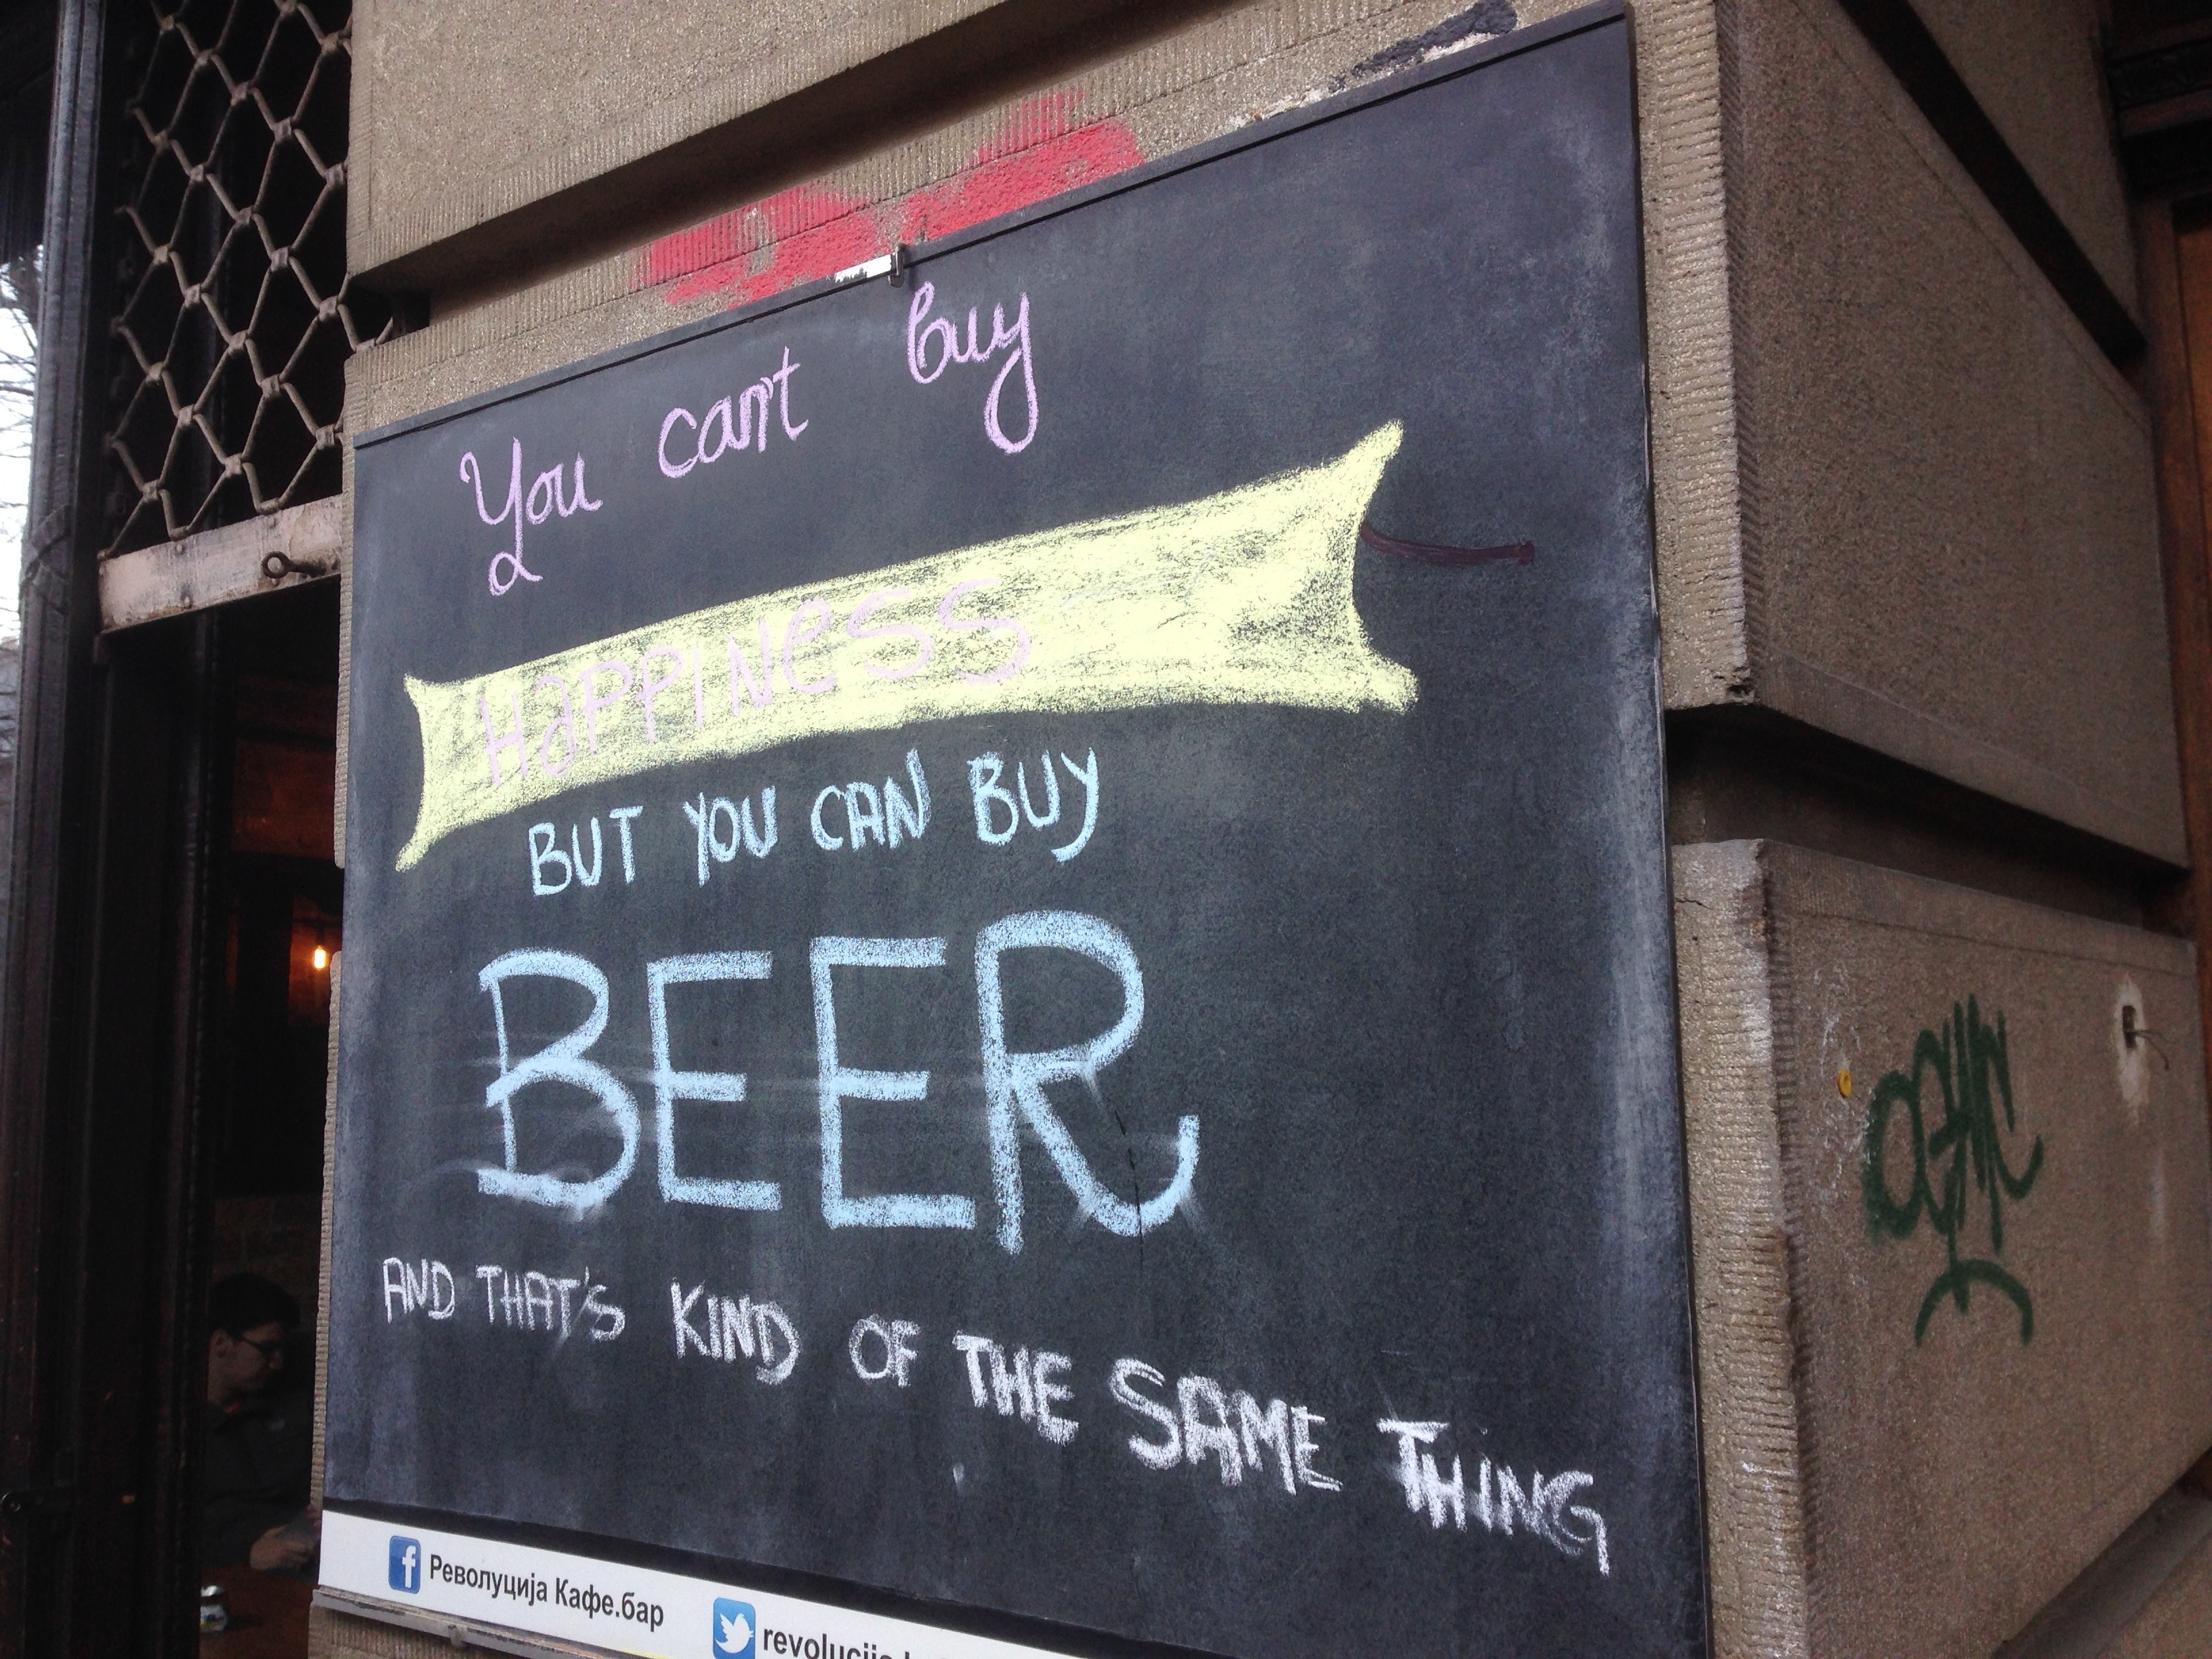 You can't buy
HaPPINeSS
BUT YOU CAN BUY
BEER
AND THAT'S KIND OF THE SAME THING
f Револуција Кафе.бар